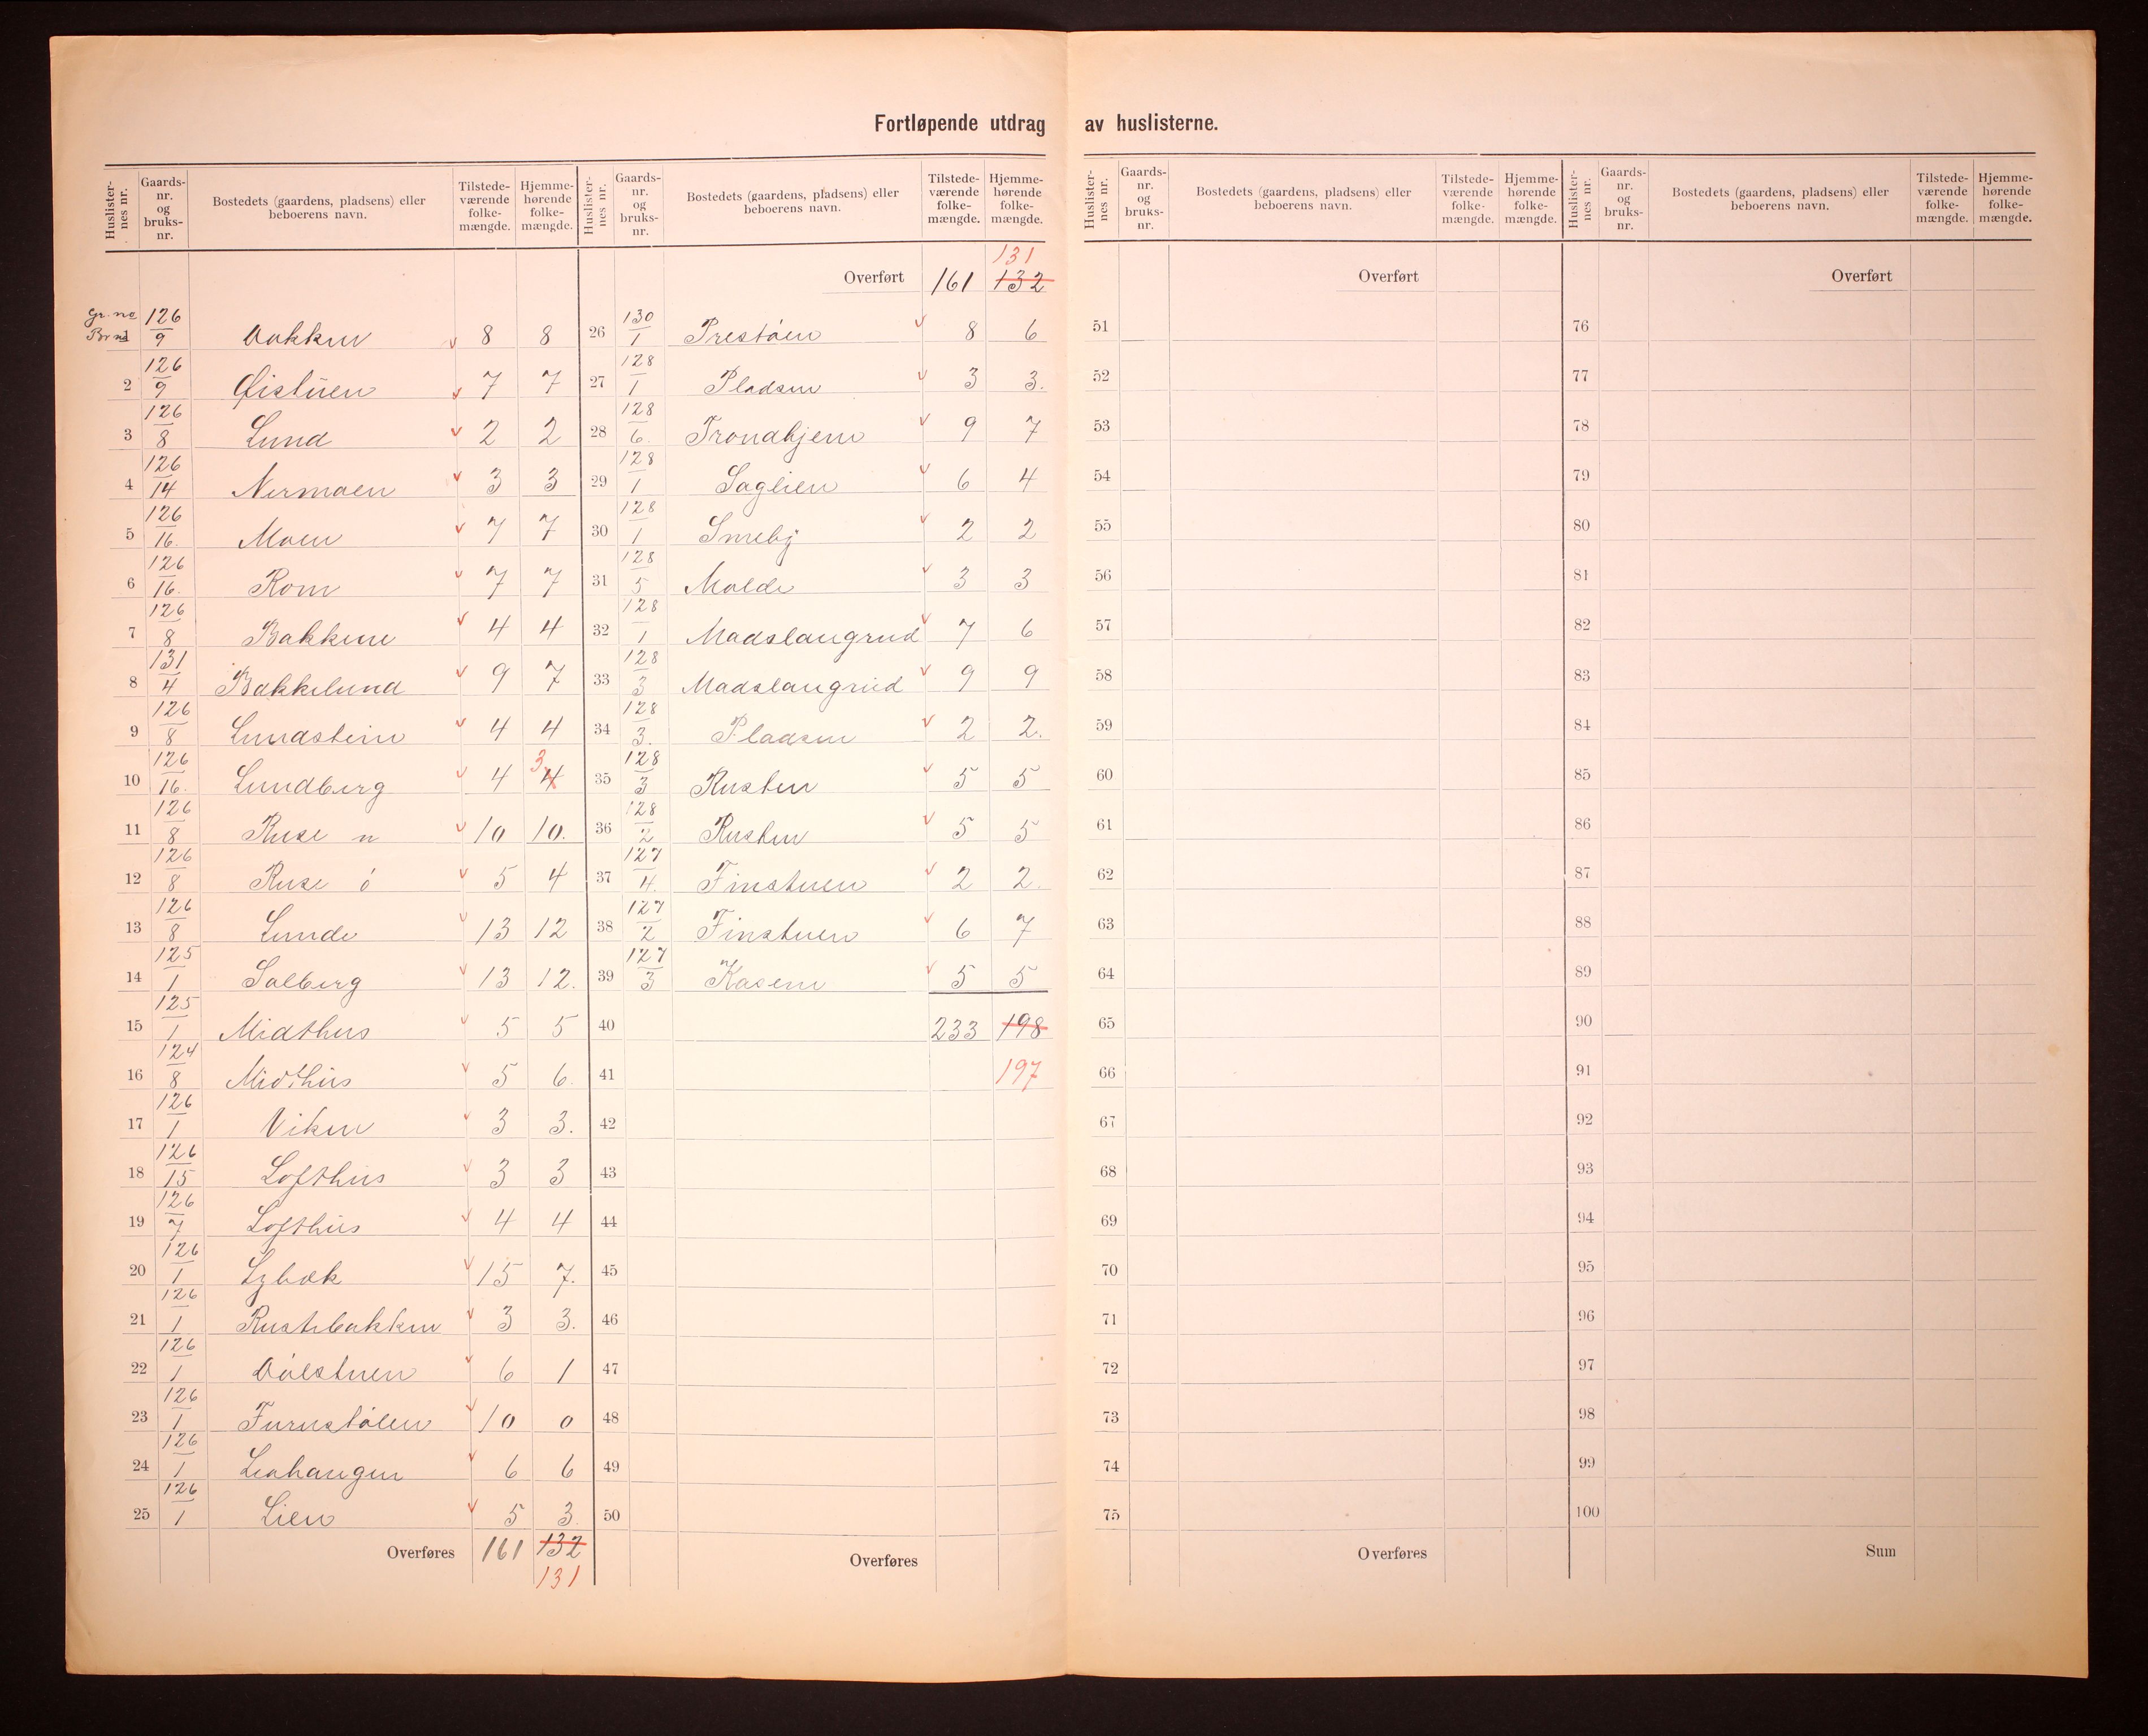 Fortløpende utdrag av huslisterne.
Huslister-nes nr. Gaards-nr. og bruks-nr. Bostedets (gaardens, pladsens) eller beboerens navn. Tilstede-værende folke-mængde. Hjemme-hørende folke-mængde.
Gr. no Br no 126/9 Bakken 8 8
2 126/9 Øistuen 7 7
3 126/8 Lund 2 2
4 126/14 Nermoen 3 3
5 126/16. Moen 7 7
6 126/16. Rom 7 7
7 126/8 Bakkene 4 4
8 131/4 Bakkelund 9 7
9 126/8 Lundstein 4 4
10 126/16. Lundberg 4 4 3
11 126/8 Ruse n 10 10.
12 126/8 Ruse ó 5 4
13 126/8 Lunde 13 12
14 125/1 Solberg 13 12.
15 125/1 Midthus 5 5
16 124/8 Midthus 5 6.
17 126/1 Viken 3 3.
18 126/15 Lofthus 3 3
19 126/7 Lofthus 4 4
20 126/1 Lybæk 15 7.
21 126/1 Rustebakken 3 3.
22 126/1 6 1
23 126/1 Furustølen 10 0
24 126/1 Liahaugen 6 6
25 126/1 Lien 5 3.
Overføres 161 132
131
Huslister-nes nr. Gaards-nr. og bruks-nr. Bostedets (gaardens, pladsens) eller beboerens navn. Tilstede-værende folke-mængde. Hjemme-hørende folke-mængde.
131
Overført 161 132
26 130/1 Prestøen 8 6
27 128/1 Pladsen 3 3.
28 128/6. Trondhjem 9 7
29 128/1 Saglien 6 4
30 128/1 Smeby 2 2
31 128/5 Molde 3 3
32 128/1 Madslangrud 7 6
33 128/3 Madslangrud 9 9
34 128/3. Pladsen 2 2.
35 128/3 Rusten 5 5
36 128/2 Rusten 5 5
37 127/4. Finstuen 2 2.
38 127/2 Finstuen 6 7
39 127/3 Kasen 5 5
40 233 198
41 197
42
43
44
45
46
47
48
49
50
Overføres
Huslister-nes nr. Gaards-nr. og bruks-nr. Bostedets (gaardens, pladsens) eller beboerens navn. Tilstede-værende folke-mængde. Hjemme-hørende folke-mængde.
Overført
51
52
53
54
55
56
57
58
59
60
61
62
63
64
65
66
67
68
69
70
71
72
73
74
75
Overføres
Huslister-nes nr. Gaards-nr. og bruks-nr. Bostedets (gaardens, pladsens) eller beboerens navn. Tilstede-værende folke-mængde. Hjemme-hørende folke-mængde.
Overført
76
77
78
79
80
81
82
83
84
85
86
87
88
89
90
91
92
93
94
95
96
97
98
99
100
Sum